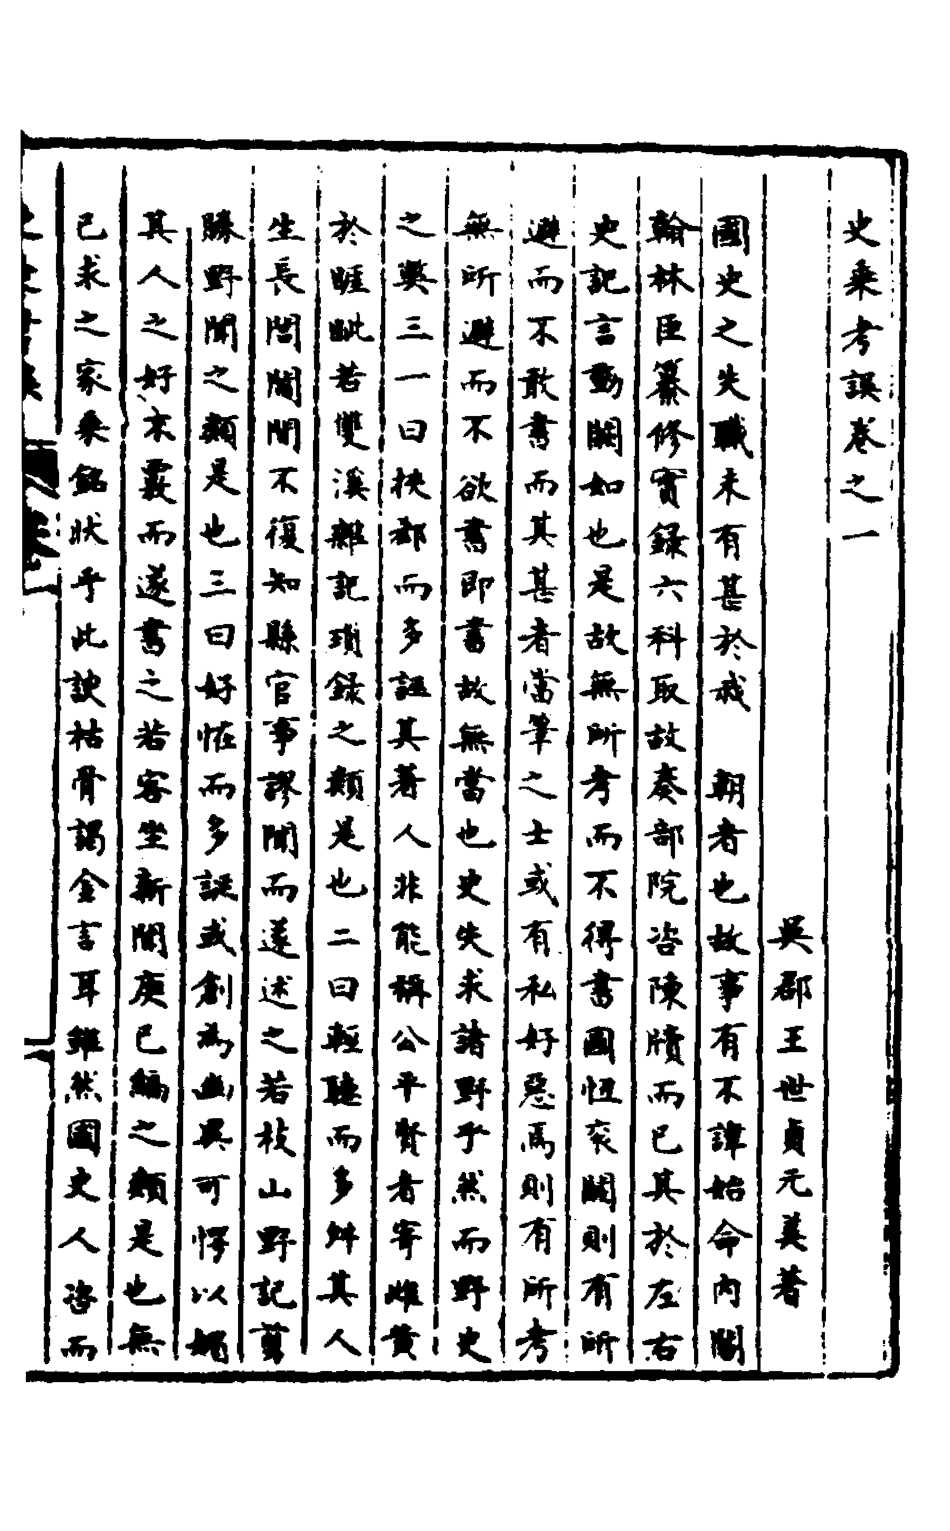 史乗考誤卷之一
吳郡王世貞元美著
國史之失職未有甚於我　朝者也故事有不諱始命內閣
翰林臣纂修實録六科取故奏部院咨陳牘而已其於左右
史記言動闕如也是故無所考而不得書國恧衮闕則有所
避而不敢書而其甚者當筆之士或有私好惡焉則有所考
無所避而不欲書即書故無當也史失求諸野乎然而野史
之弊三一曰挾郄而多誣其著人非能稱公平賢者寄雌黃
於睚眦若雙溪雜記瑣録之類是也二曰輕聽而多舛其人
生長閭閻間不復知縣官事謬聞而遂述之若枝山野記翦
勝野聞之類是也三曰好怪而多誕或創為幽異可愕以媚
其人之好不覈而遂書之若客坐新聞庚巳編之類是也無
已求之家乗銘狀乎此諛枯骨謁金言耳雖然國史人恣而